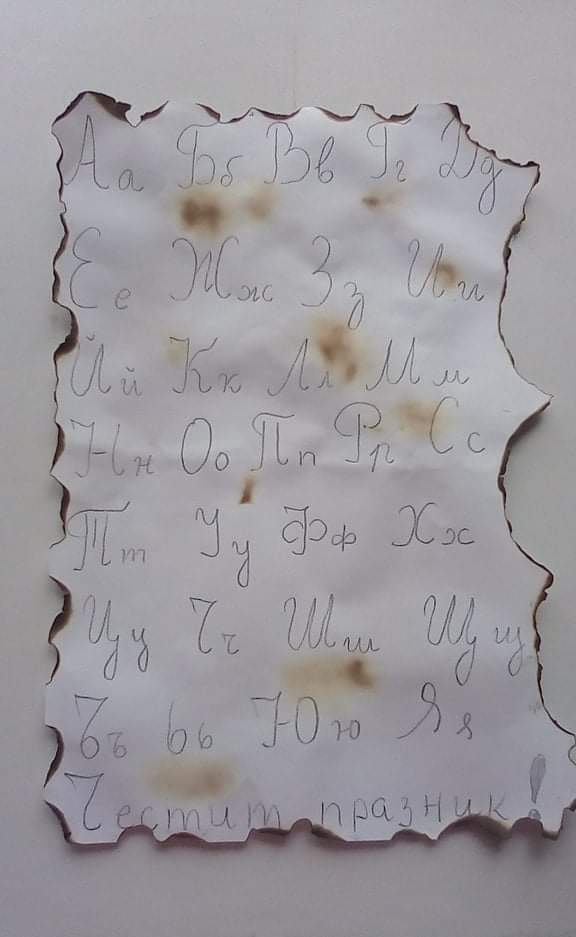 Аа Бб Вв Гг Дд
Ее Жж Зз Ии
Йй Кк Лл Мм
Нн Оо Пп Рр Сс
Тт Уу Фф Хх
Цц Чч Шш Щщ
Ъъ ьь Юю Яя
Честит празник!